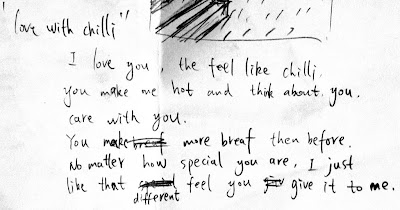 "love with chilli"
I love you, the feel like chilli.
you make me hot and think about you.
care with you.
You make more breaf then before.
No matter how special you are, I just
like that different feel you give it to me.